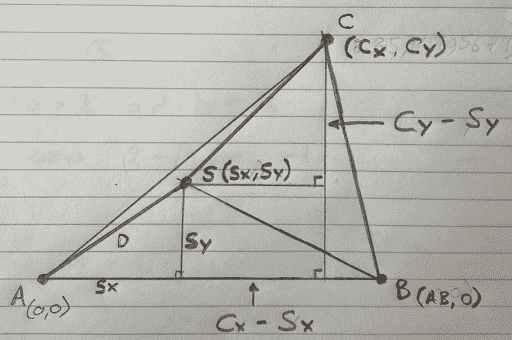 C
(Cx, Cy)
Cy - Sy
S (Sx, Sy)
D
Sy
A (0,0)
Sx
B (AB, 0)
Cx - Sx